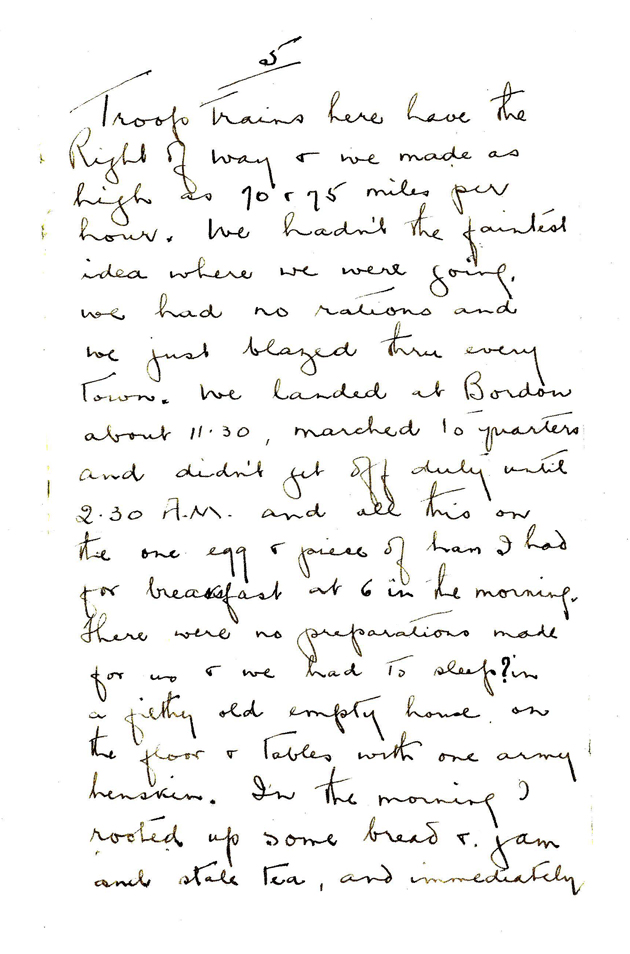 5
Troop Trains here have the
Right of way & we made as
high as 70 & 75 miles per
hour. We hadn't the faintest
idea where we were going.
we had no rations and
we just blazed thru every
Town. We landed at Bordon
about 11.30, marched to quarters
and didn't get off duty until
2.30 A.M. and all this on
the one egg & piece of ham I had
for breakfast at 6 in the morning.
There were no preparations made
for us & we had to sleep? in
a filthy old empty house on
the floor & Tables with one army
henskin. In the morning I
rooted up some bread &. jam
and stale Tea, and immediately